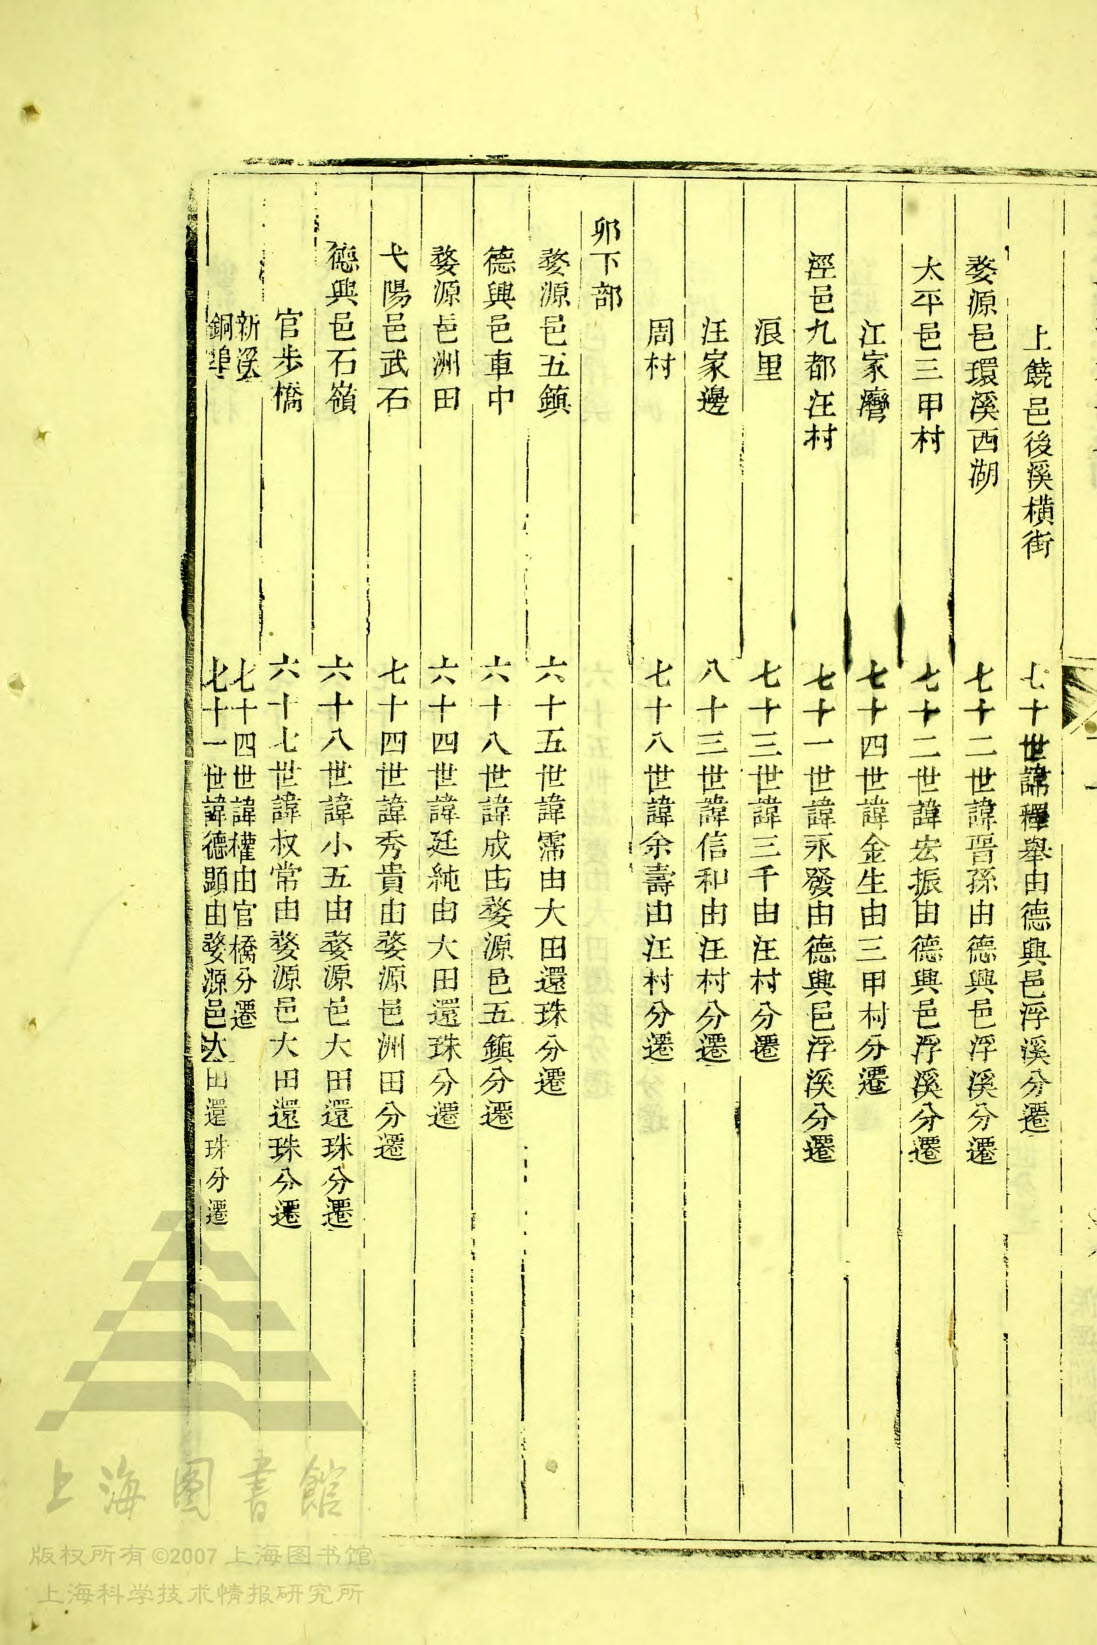 上饒邑後溪橫街 七十世諱釋舉由德興邑浮溪分遷
婺源邑環溪西湖 七十二世諱晋孫由德興邑浮溪分遷
太平邑三甲村 七十二世諱宏振由德興邑浮溪分遷
江家灣 七十四世諱金生由三甲村分遷
涇邑九都汪村 七十一世諱永發由德興邑浮溪分遷
浪里 七十三世諱三千由汪村分遷
汪家邊 八十三世諱信和由汪村分遷
周村 七十八世諱余壽由汪村分遷
卯下部
婺源邑五鎮 六十五世諱霈由大田還珠分遷
德興邑車中 六十八世諱成由婺源邑五鎮分遷
婺源邑洲田 六十四世諱廷純由大田還珠分遷
弋陽邑武石 七十四世諱秀貴由婺源邑洲田分遷
德興邑石嶺 六十八世諱小五由婺源邑大田還珠分遷
官步橋 六十七世諱叔常由婺源邑大田還珠分遷
新溪 七十四世諱權由官橋分遷
銅埠 七十一世諱德顕由婺源邑大田還珠分遷
上海图書館
版权所有©2007 上海图书馆
上海科学技术情报研究所